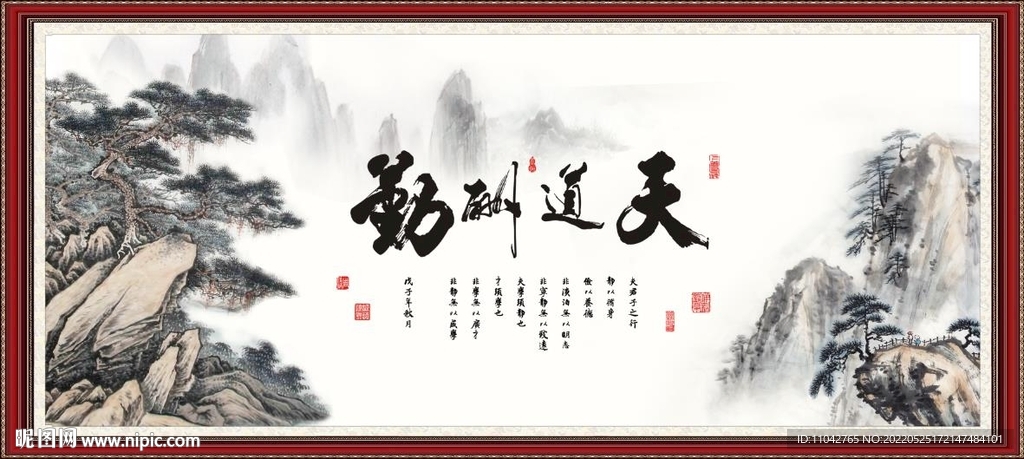 天道酬勤
夫君子之行
静以脩身
儉以養德
非淡泊無以明志
非寧静無以致遠
夫學須静也
才須學也
非學無以廣才
非静無以成學
戊子年秋月
昵图网 www.nipic.com
ID:11042765 NO:20220525172147484101